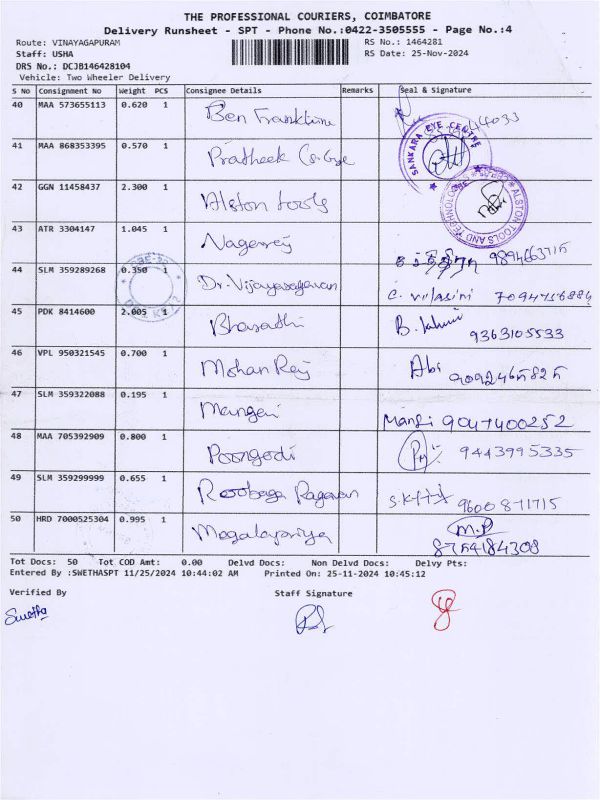 THE PROFESSIONAL COURIERS, COIMBATORE
Delivery Runsheet - SPT - Phone No.:0422-3505555 - Page No.:4
Route: VINAYAGAPURAM RS No.: 1464281
Staff: USHA RS Date: 25-Nov-2024
DRS No.: DCJB146428104
Vehicle: Two Wheeler Delivery
S No Consignment No Weight PCS Consignee Details Remarks Seal & Signature
40 MAA 573655113 0.620 1 Ben Franklin
SANKARA EYE CENTRE
41 MAA 868353395 0.570 1 Pratheek
42 GGN 11458437 2.300 1 Alston tools
ALSTON TOOLS AND TECHNOLOGIES
43 ATR 3304147 1.045 1 Nagaraj
44 SLM 359289268 0.350 1 Dr. Vijayasagavan C. Vilasini
45 PDK 8414600 2.005 1 Bharathi 9363105533
46 VPL 950321545 0.700 1 Mohan Raj Abi 9092465825
47 SLM 359322088 0.195 1 Mangai Mangi 9047400252
48 MAA 705392909 0.800 1 Poongodi 9443995335
49 SLM 359299999 0.655 1 Ragavan 9600871715
50 HRD 7000525304 0.995 1 M.P
8754184308
Tot Docs: 50 Tot COD Amt: 0.00 Delvd Docs: Non Delvd Docs: Delvy Pts:
Entered By :SWETHASPT 11/25/2024 10:44:02 AM Printed On: 25-11-2024 10:45:12
Verified By Staff Signature
Swetha